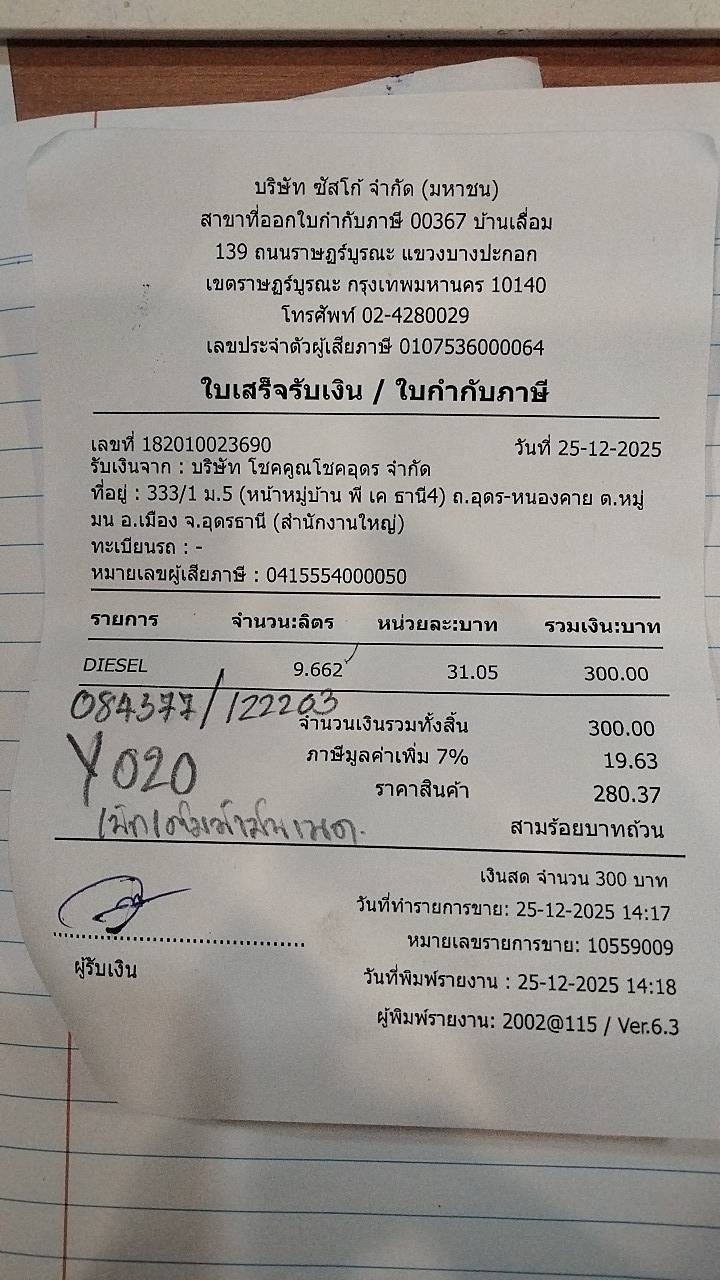 บริษัท ซัสโก้ จำกัด (มหาชน)
สาขาที่ออกใบกำกับภาษี 00367 บ้านเลื่อม
139 ถนนราษฎร์บูรณะ แขวงบางปะกอก
เขตราษฎร์บูรณะ กรุงเทพมหานคร 10140
โทรศัพท์ 02-4280029
เลขประจำตัวผู้เสียภาษี 0107536000064
ใบเสร็จรับเงิน / ใบกำกับภาษี
เลขที่ 182010023690 วันที่ 25-12-2025
รับเงินจาก : บริษัท โชคคูณโชคอุดร จำกัด
ที่อยู่ : 333/1 ม.5 (หน้าหมู่บ้าน พี เค ธานี4) ถ.อุดร-หนองคาย ต.หมู่
มน อ.เมือง จ.อุดรธานี (สำนักงานใหญ่)
ทะเบียนรถ : -
หมายเลขผู้เสียภาษี : 0415554000050
รายการ จำนวน:ลิตร หน่วยละ:บาท รวมเงิน:บาท
DIESEL 9.662 31.05 300.00
084377/122203
จำนวนเงินรวมทั้งสิ้น 300.00
Y020
ภาษีมูลค่าเพิ่ม 7% 19.63
ราคาสินค้า 280.37
สามร้อยบาทถ้วน
เงินสด จำนวน 300 บาท
วันที่ทำรายการขาย: 25-12-2025 14:17
หมายเลขรายการขาย: 10559009
ผู้รับเงิน
วันที่พิมพ์รายงาน : 25-12-2025 14:18
ผู้พิมพ์รายงาน: 2002@115 / Ver.6.3